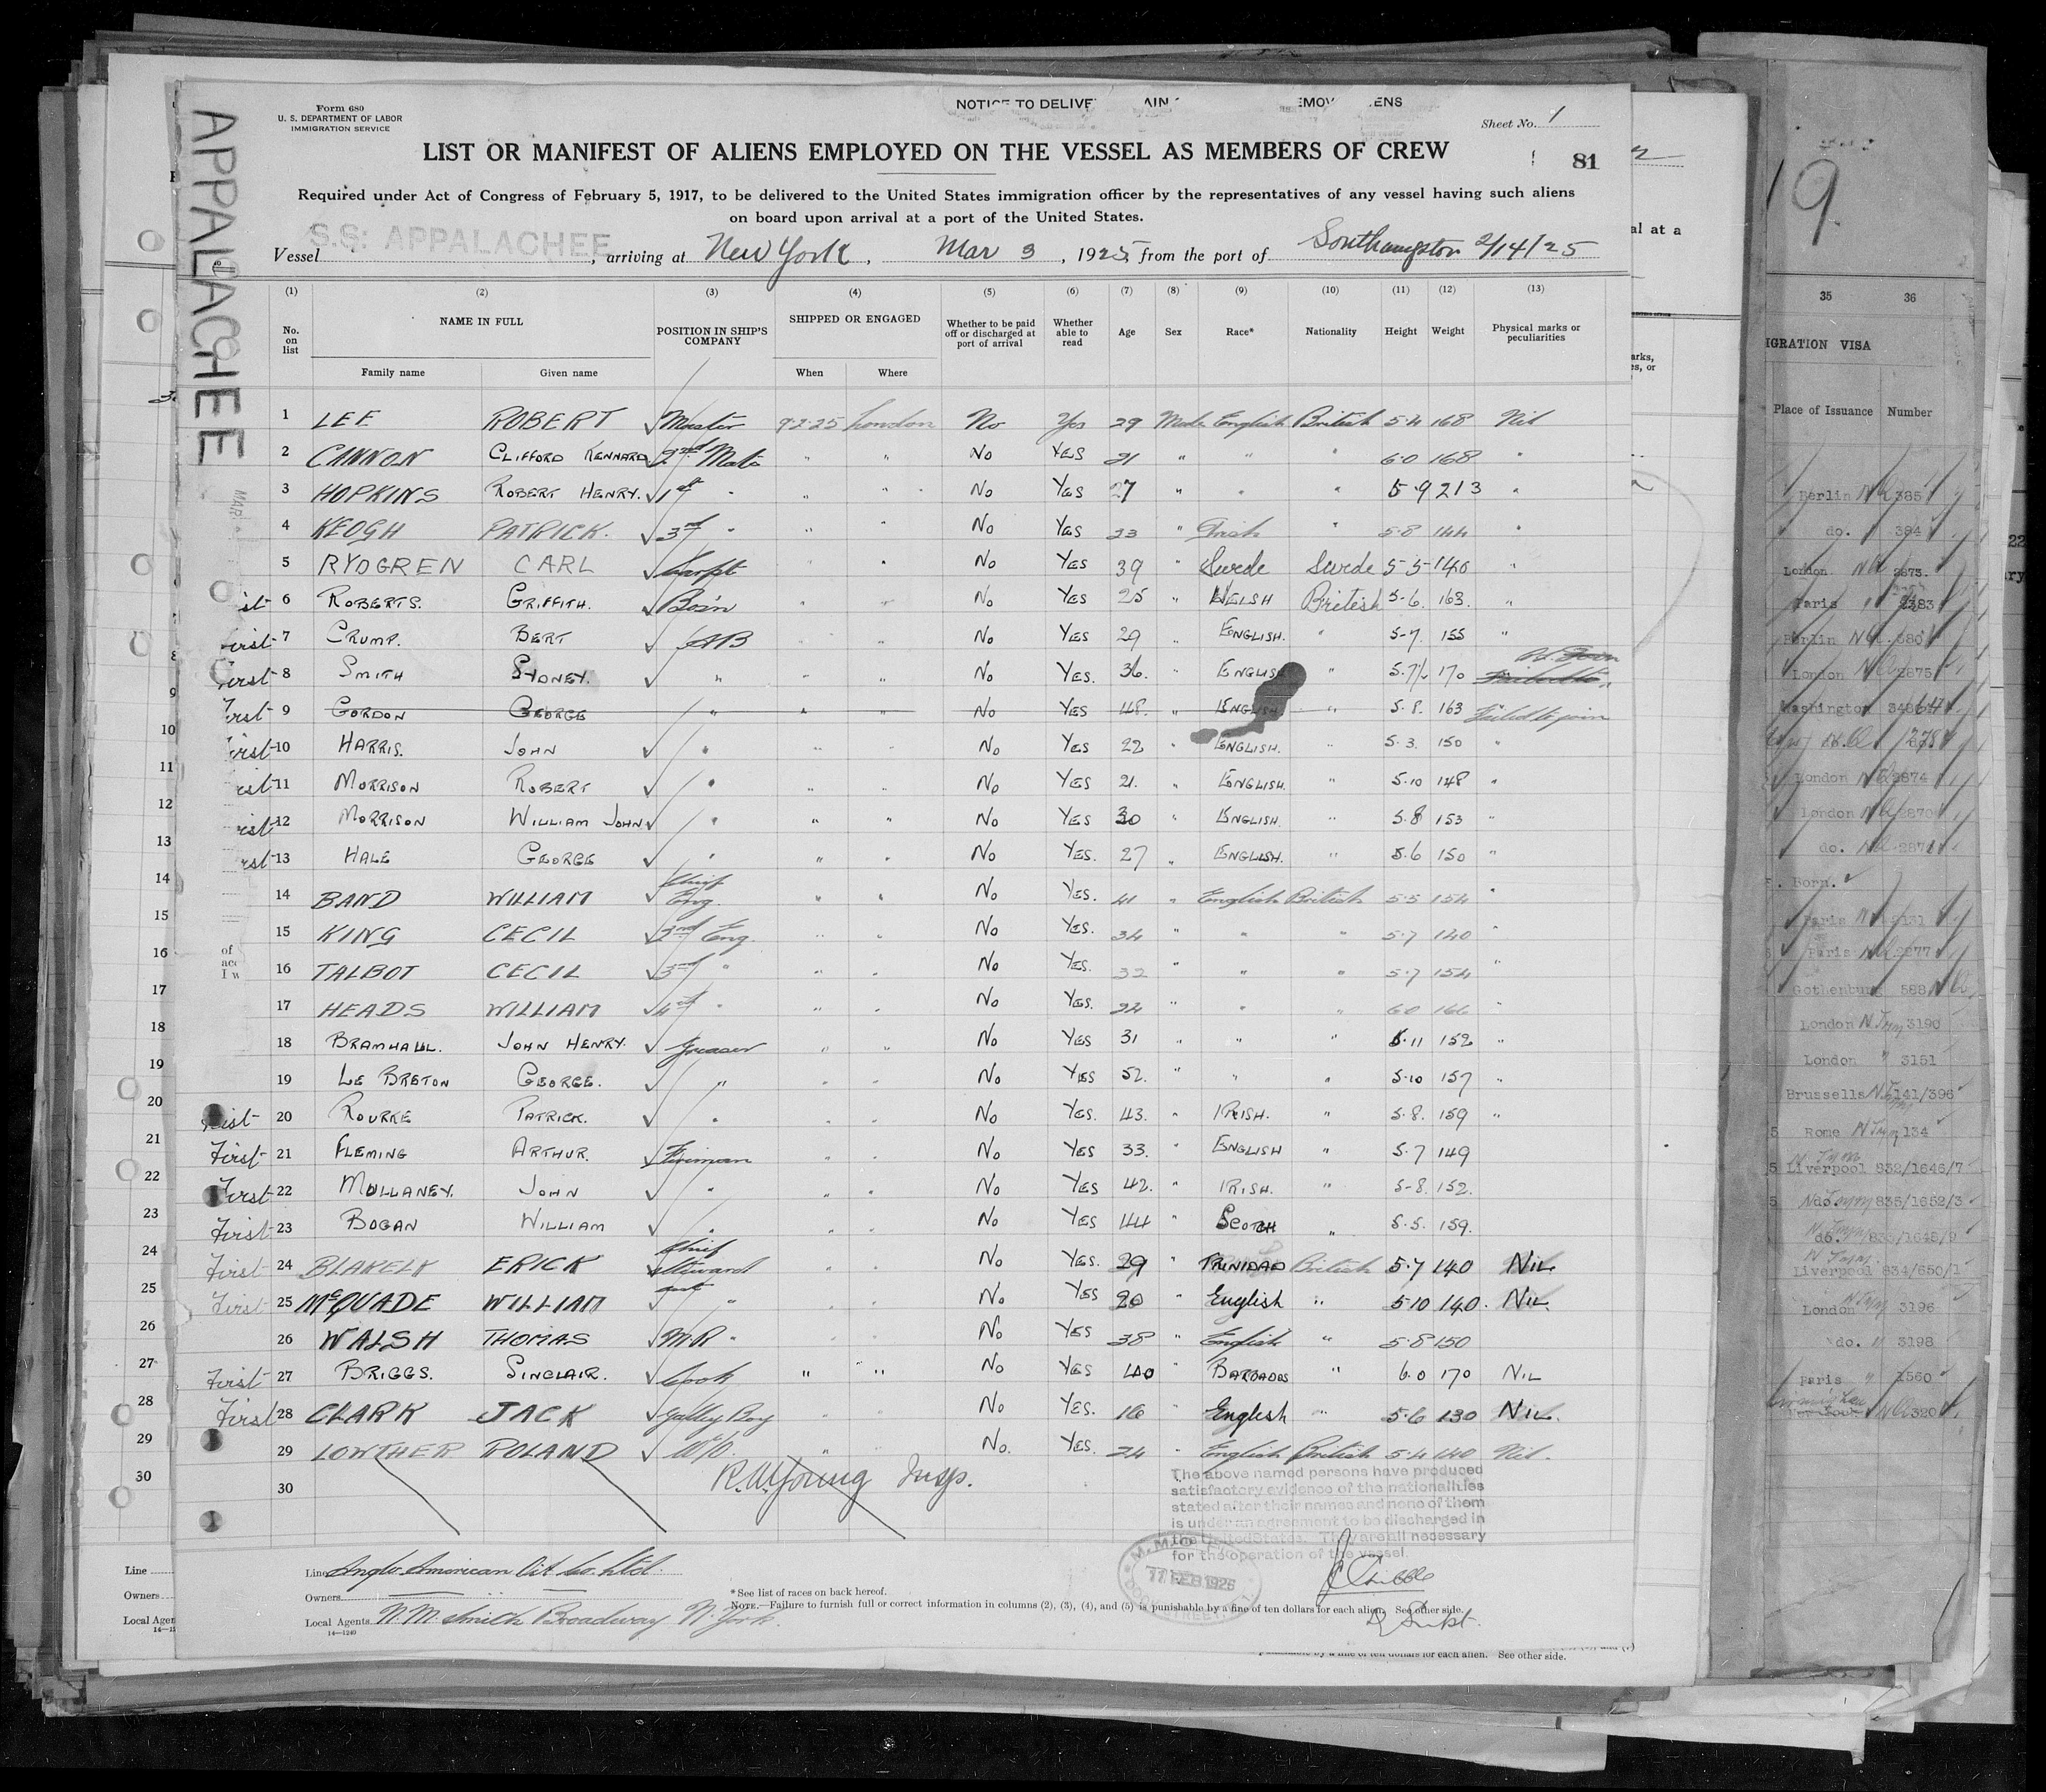 Form 680
U. S. DEPARTMENT OF LABOR
IMMIGRATION SERVICE
NOTICE TO DELIVE AIN EMOV ENS
Sheet No. 1
LIST OR MANIFEST OF ALIENS EMPLOYED ON THE VESSEL AS MEMBERS OF CREW
81
Required under Act of Congress of February 5, 1917, to be delivered to the United States immigration officer by the representatives of any vessel having such aliens
on board upon arrival at a port of the United States.
APPALACHEE
Vessel S.S. APPALACHEE, arriving at New York, Mar 3, 1925, from the port of Southampton 2/14/25
(1) (2) (3) (4) (5) (6) (7) (8) (9) (10) (11) (12) (13)
No. on list NAME IN FULL POSITION IN SHIP'S COMPANY SHIPPED OR ENGAGED Whether to be paid off or discharged at port of arrival Whether able to read Age Sex Race* Nationality Height Weight Physical marks or peculiarities
Family name Given name When Where
1 LEE ROBERT Master 9-2-25 London No Yes 29 Male English British 5-4 168 Nil
2 CANNON CLIFFORD KENNARD 2nd Mate " " No YES 21 " " " 6-0 168 "
3 HOPKINS ROBERT HENRY. 1st " " " No YES 27 " " " 5-9 213 "
4 KEOGH PATRICK. 3rd " " " No YES 23 " Irish " 5-8 144 "
5 RYDGREN CARL Carpt " " No YES 39 " Swede Swede 5-5 140 "
6 ROBERTS. GRIFFITH. Bos'n " " No YES 25 " WELSH British 5-6. 163. "
First 7 CRUMP. BERT AB " " No YES 29 " ENGLISH. " 5-7. 155 "
First 8 SMITH SYDNEY. " " " No YES. 36. " ENGLISH " 5.7½ 170
First 9 GORDON GEORGE " " " No YES 48. " ENGLISH " 5.8. 163 Failed to join
First 10 HARRIS. JOHN " " " No YES 22 " ENGLISH. " 5.3. 150 "
11 MORRISON ROBERT " " " No YES 21. " ENGLISH. " 5.10 148 "
12 MORRISON WILLIAM JOHN " " " No YES 30 " ENGLISH. " 5.8 153 "
13 HALE GEORGE " " " No YES. 27 " ENGLISH. " 5.6 150 "
14 BAND WILLIAM Chief Eng. " " No YES. 41 " English British 5-5 154 "
15 KING CECIL 2nd Eng. " " No YES. 34 " " " 5.7 140 "
16 TALBOT CECIL 3rd " " " No YES. 32 " " " 5.7 154 "
17 HEADS WILLIAM 4th " " " No YES. 24 " " " 6-0 166 "
18 BRAMHALL. JOHN HENRY. Greaser " " No YES 31 " " " 5.11 152 "
19 LE BRETON GEORGE. " " " No YES 52. " " " 5.10 157 "
20 ROURKE PATRICK. " " " No YES. 43. " IRISH. " 5.8. 159 "
First 21 FLEMING ARTHUR. Fireman " " No YES 33. " ENGLISH " 5.7 149
First 22 MULLANEY. JOHN " " " No YES 42. " IRISH. " 5-8. 152.
First 23 BOGAN WILLIAM " " " No YES 44 " SCOTCH " 5.5. 159.
First 24 BLAKELY ERICK Chief Steward " " No YES. 29 " TRINIDAD British 5.7 140 NIL
First 25 McQUADE WILLIAM asst " " " No YES 20 " English " 5-10 140. NIL
26 WALSH THOMAS M.R " " " No YES 38 " English " 5-8 150
First 27 BRIGGS. SINCLAIR. Cook " " No YES 40 " BARBADOS " 6.0 170 NIL
First 28 CLARK JACK Galley Boy " " No YES. 16 " English " 5.6 130 NIL.
29 LOWTHER ROLAND W/O " No. YES. 24 " English British 5.4 140 Nil.
30
R.W. Young Insp.
The above named persons have produced
satisfactory evidence of the nationalities
stated after their names and none of them
is under an agreement to be discharged in
the United States. They are all necessary
for the operation of the vessel.
Line Anglo American Oil Co. Ltd.
Owners
Local Agents N. M. Smith Broadway N. York.
14—1240
* See list of races on back hereof.
NOTE.—Failure to furnish full or correct information in columns (2), (3), (4), and (5) is punishable by a fine of ten dollars for each alien. See other side.
Supt.
Line
Owners
Local Agen
punishable by a fine of ten dollars for each alien. See other side.
al at a
19
35 36
IGRATION VISA
Place of Issuance Number
Berlin 385
do. 384
London 2873.
Paris
Berlin
London 2875
Washington
London 2874
London 2870
do.
Born.
Paris
Paris 2877
Gothenburg 588
London 3190
London 3151
Brussels 141/396
Rome 134
Liverpool 832/1646/7
do 835/1652/3
do.
Liverpool 834/650/1
London 3196
do. 3198
Paris 1560
320